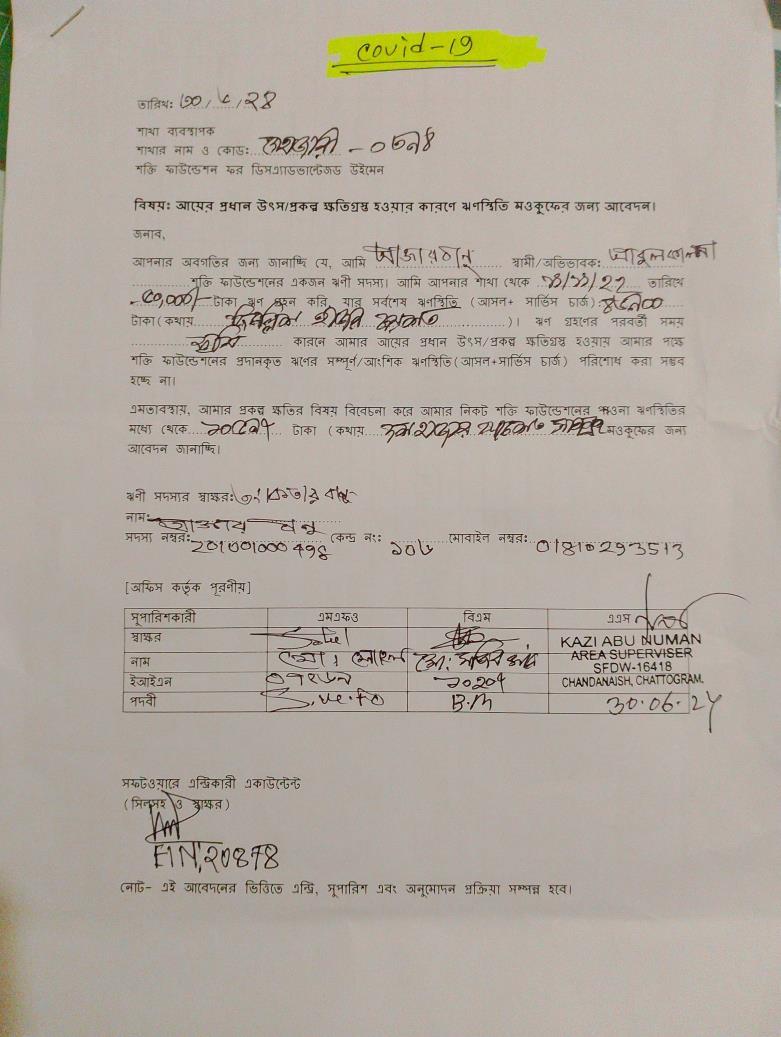 covid-19
তারিখ: ৩০/৬/২৪
শাখা ব্যবস্থাপক
শাখার নাম ও কোড: - ০৩৮৪
শক্তি ফাউন্ডেশন ফর ডিসএ্যাডভান্টেজড উইমেন
বিষয়: আয়ের প্রধান উৎস/প্রকল্প ক্ষতিগ্রস্থ হওয়ার কারণে ঋণস্থিতি মওকুফের জন্য আবেদন।
জনাব,
আপনার অবগতির জন্য জানাচ্ছি যে, আমি স্বামী/অভিভাবক:
শক্তি ফাউন্ডেশনের একজন ঋণী সদস্য। আমি আপনার শাখা থেকে তারিখে
৫০,০০০/- টাকা ঋণ গ্রহন করি, যার সর্বশেষ ঋণস্থিতি (আসল+ সার্ভিস চার্জ)
টাকা (কথায় )। ঋণ গ্রহণের পরবর্তী সময়
কারনে আমার আয়ের প্রধান উৎস/প্রকল্প ক্ষতিগ্রস্থ হওয়ায় আমার পক্ষে
শক্তি ফাউন্ডেশনের প্রদানকৃত ঋণের সম্পূর্ণ/আংশিক ঋণস্থিতি(আসল+সার্ভিস চার্জ) পরিশোধ করা সম্ভব
হচ্ছে না।
এমতাবস্থায়, আমার প্রকল্প ক্ষতির বিষয় বিবেচনা করে আমার নিকট শক্তি ফাউন্ডেশনের পাওনা ঋণস্থিতির
মধ্যে থেকে টাকা (কথায় মওকুফের জন্য
আবেদন জানাচ্ছি।
ঋণী সদস্যর স্বাক্ষর:
নাম:
সদস্য নম্বর: কেন্দ্র নং: ১০৬ মোবাইল নম্বর: 01810293513
[অফিস কর্তৃক পূরণীয়]
সুপারিশকারী এমএফও বিএম এএস
স্বাক্ষর Sohel KAZI ABU NUMAN
নাম মো: AREA SUPERVISER
SFDW-16418
ইআইএন CHANDANAISH, CHATTOGRAM.
পদবী B.M 30.06.24
সফটওয়ারে এন্ট্রিকারী একাউন্টেন্ট
(সিলসহ ও স্বাক্ষর)
EIN:20878
নোট- এই আবেদনের ভিত্তিতে এন্ট্রি, সুপারিশ এবং অনুমোদন প্রক্রিয়া সম্পন্ন হবে।